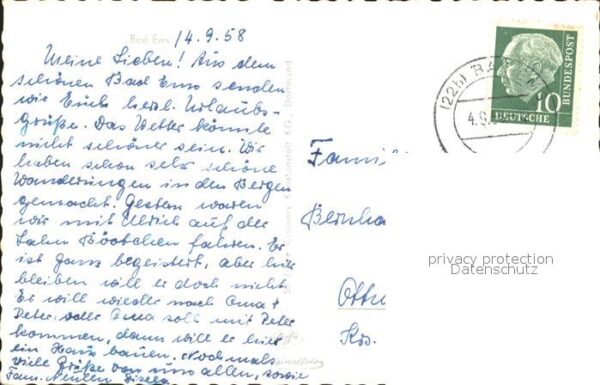 14.9.58
Bad Ems
Meine Lieben! Aus dem
schönen Bad Ems senden
wir Euch herzl. Urlaubs-
grüße. Das Wetter könnte
nicht schöner sein. Wir
haben schon sehr schöne
Wanderungen in den Bergen
gemacht. Gestern waren
wir mit Ulrich auf der
Lahn Böötchen fahren. Er
ist ganz begeistert, aber hier
bleiben will er doch nicht.
Er will wieder nach Oma +
Peter, oder Oma soll mit Peter
kommen, dann will er hier
ein Haus bauen. Nochmals
viele Grüße von uns allen, sowie
Fam.
Kunstanstalt K.G., Dortmund
Famil
Bernha
Ottw
Krs.
(22b) BAD E
4.9.
10
DEUTSCHE
BUNDESPOST
privacy protection
Datenschutz